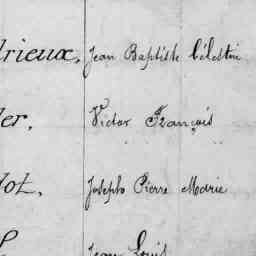 drieux, Jean Baptiste Célestin
ler, Victor François
lot, Joseph Pierre Marie
Jean Louis